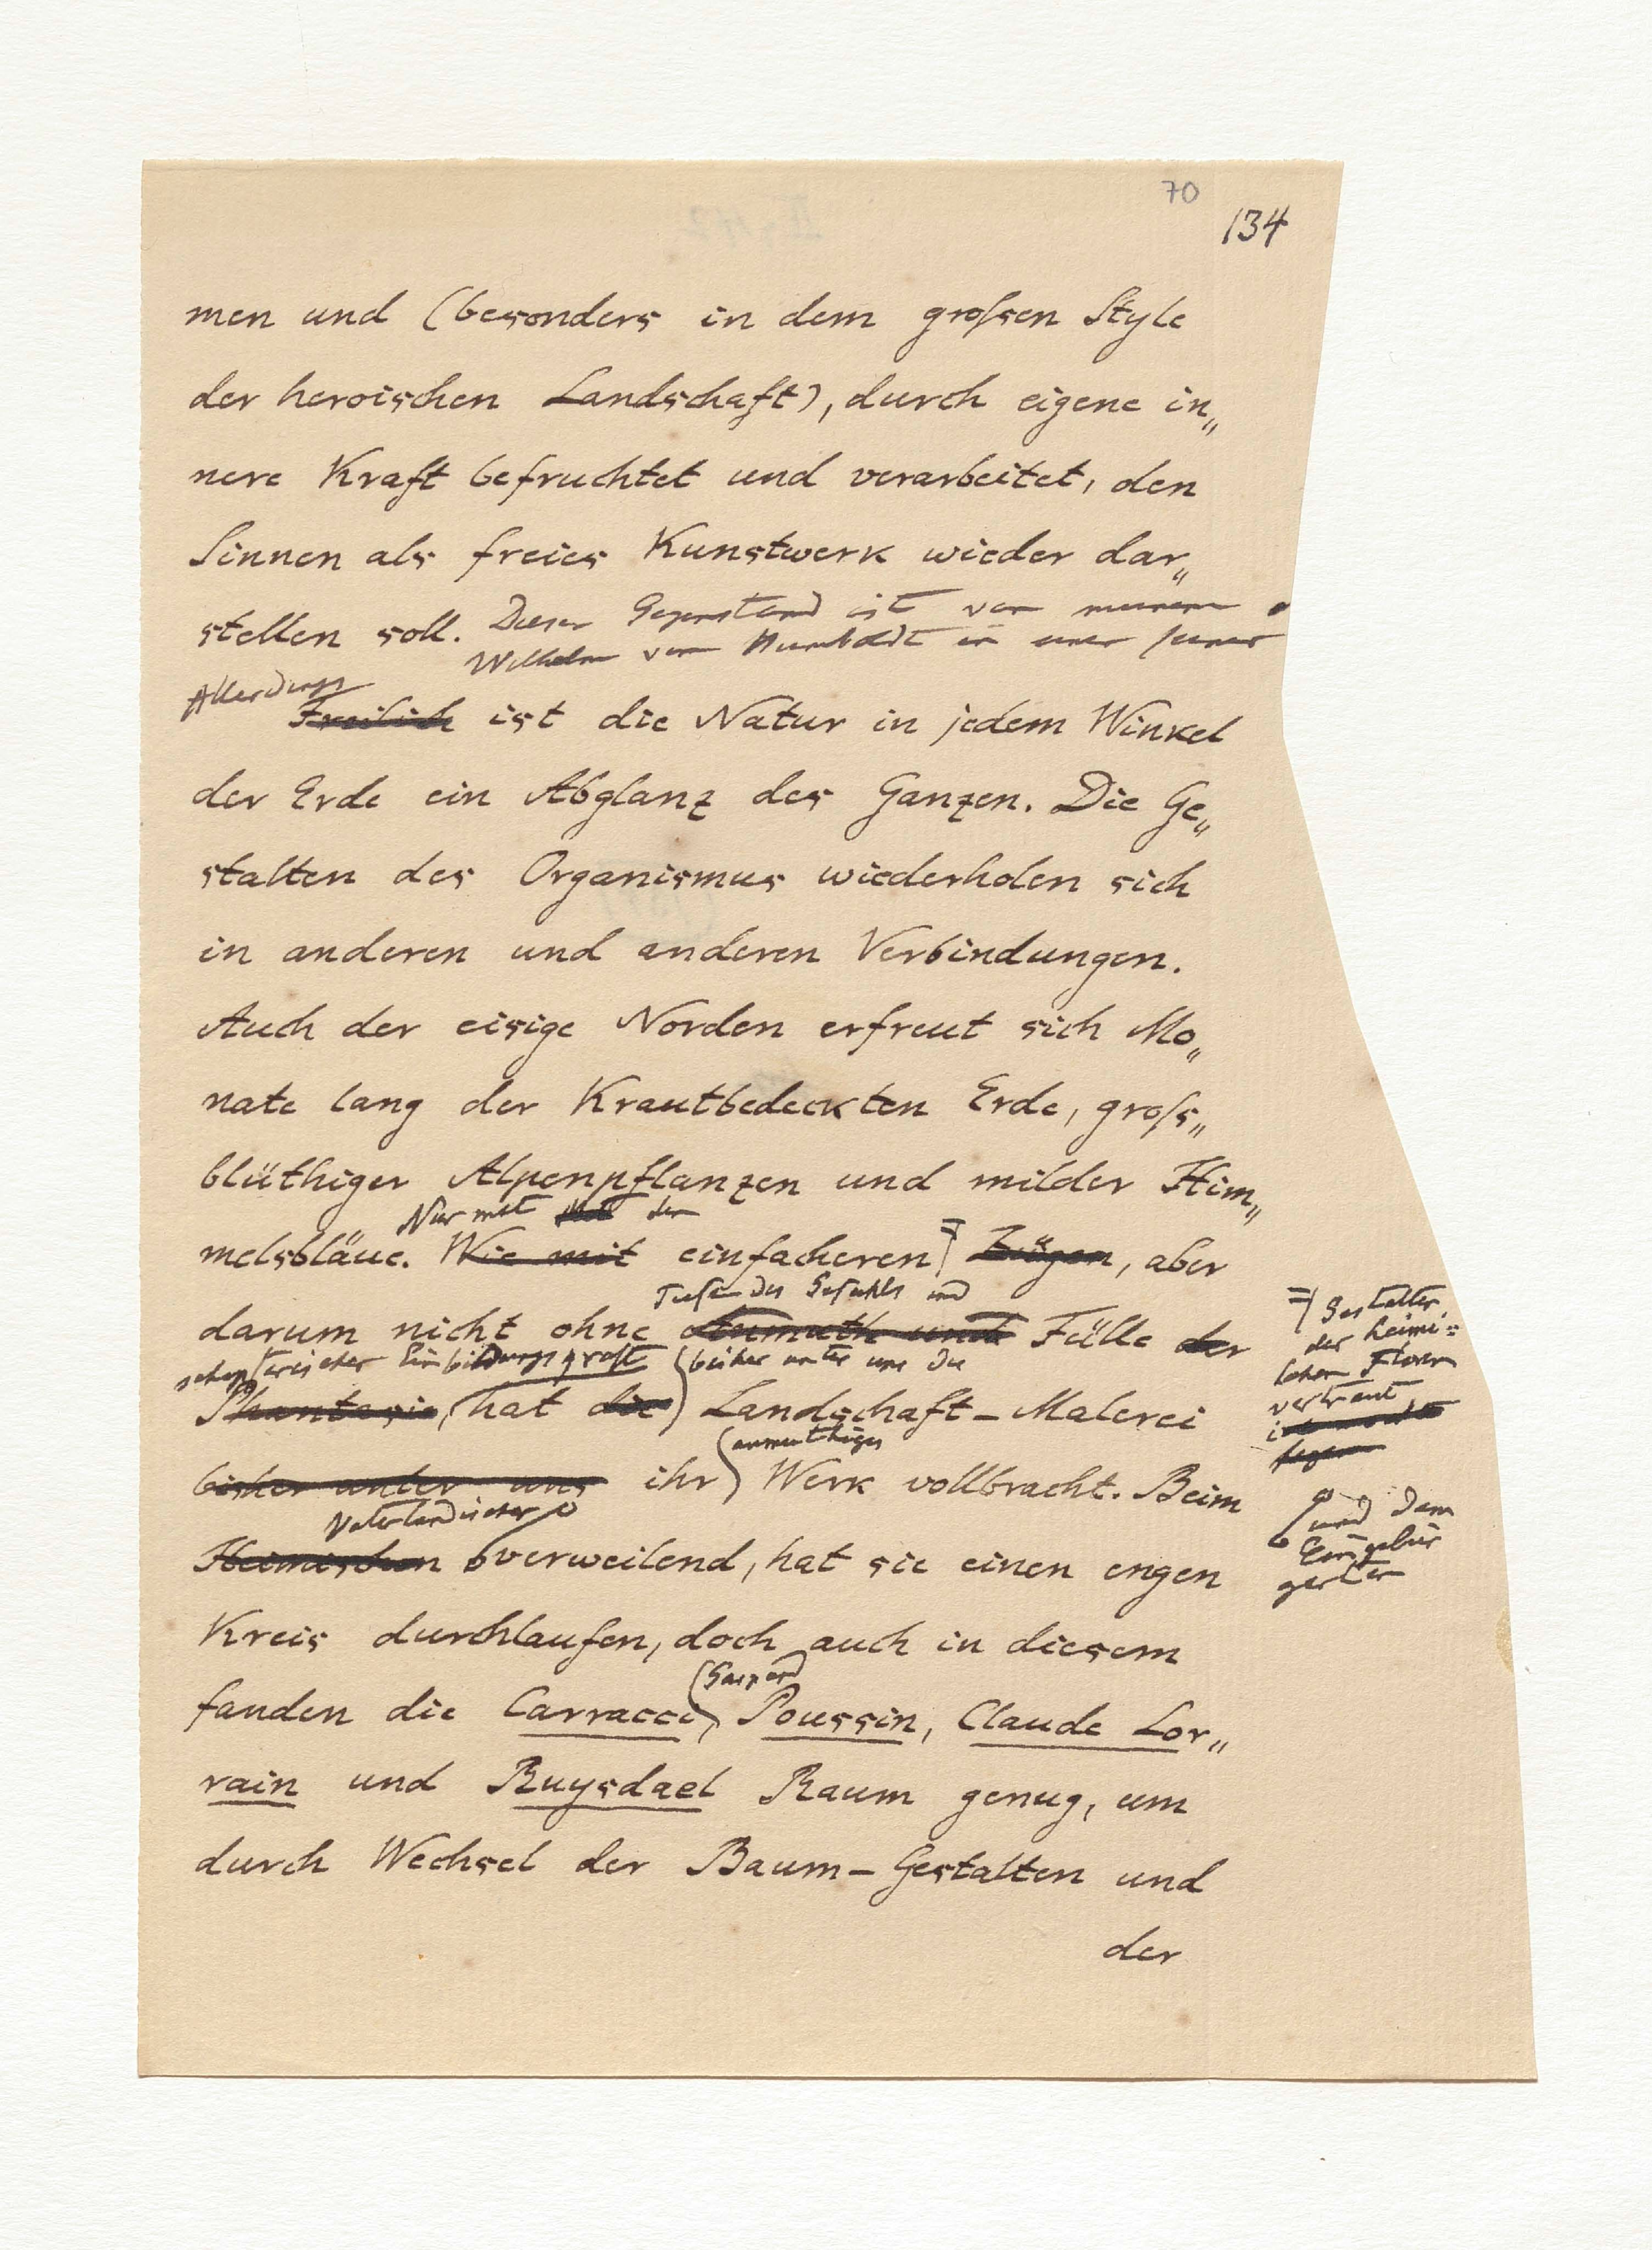 70
134
men und (besonders in dem großen Style
der heroischen Landschaft), durch eigene in„
nere Kraft befruchtet und verarbeitet, den
Sinnen als freies Kunstwerk wieder dar„
stellen soll. Dieser Gegenstand ist von meinem
Wilhelm von Humboldt in einer seiner
Allerdings
Freilich ist die Natur in jedem Winkel
der Erde ein Abglanz des Ganzen. Die Ge„
stalten des Organismus wiederholen sich
in anderen und anderen Verbindungen.
Auch der eisige Norden erfreut sich Mo„
nate lang der Krautbedeckten Erde, groß„
blüthiger Alpenpflanzen und milder Him„
Nur mit den
melsbläue. Wie mit einfacheren Zügen, aber
Tiefe des Gefühls und
darum nicht ohne Anmuth und Fülle der
schöpferischer Einbildungskraft (bisher unter uns die
Phantasie, hat die) Landschaft-Malerei
(anmuthiges
bisher unter uns ihr) Werk vollbracht. Beim
Vaterländischen
Heimischen verweilend, hat sie einen engen
Kreis durchlaufen, doch auch in diesem
(Gaspard
fanden die Carracci), Poussin, Claude Lor„
rain und Ruysdael Raum genug, um
durch Wechsel der Baum-Gestalten und
der
Gestalten
der heimi=
schen Floren
vertraut
und dem
Eingebür
gerten